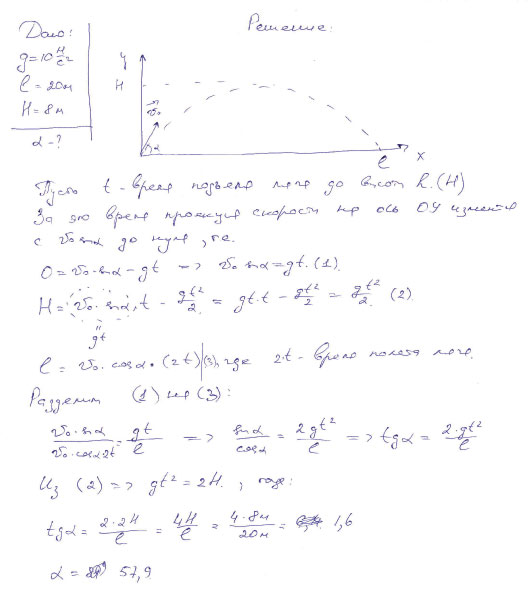 Дано:
Решение:
g=10 Н/с²
l = 20м
H = 8м
α - ?
y
H
v₀
α
l
x
Пусть t - время подъема мяча до высоты h.(H)
За это время проекция скорости на ось OY изменится
с v₀ sinα до нуля, т.е.
0 = v₀·sinα - gt => v₀ sinα = gt. (1).
H = v₀·sinα·t - gt²/2 = gt·t - gt²/2 = gt²/2 (2)
gt
l = v₀·cosα·(2t) (3), где 2t - время полета мяча.
Разделим (1) на (3):
v₀·sinα/v₀·cosα2t = gt/l => sinα/cosα = 2gt²/l => tgα = 2·gt²/l
Из (2) => gt² = 2H, тогда:
tgα = 2·2H/l = 4H/l = 4·8м/20м = 1,6
α = 57,9